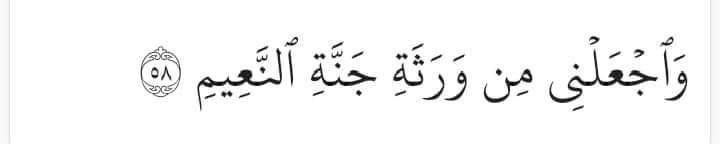 وَٱجْعَلْنِى مِن وَرَثَةِ جَنَّةِ ٱلنَّعِيمِ ٥٨